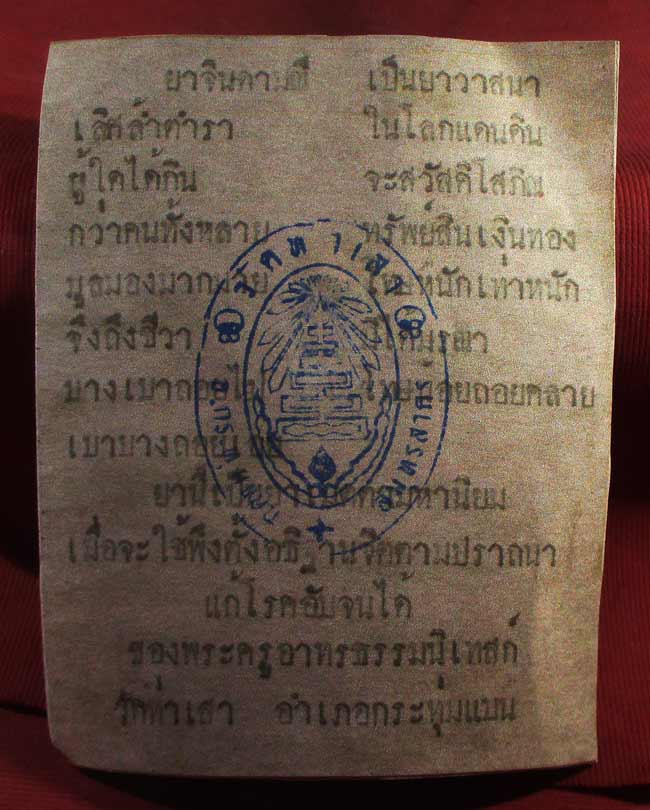 ยาจินดามณี เป็นยาวาสนา
เลิศล้ำตำรา ในโลกแดนดิน
ผู้ใดได้กิน จะสวัสดิโสภิณ
กว่าคนทั้งหลาย ทรัพย์สินเงินทอง
มูลมองมากมาย โทษหนักเท่าหนัก
จึงถึงชีวา
บางเบาถอย เบาน้อยถอยคลาย
เบาบางถอย
ยานี้เป็น มหานิยม
เมื่อจะใช้พึงตั้งอธิฐานจิตตามปราถนา
แก้โรคอับจนได้
ของพระครูอาทรธรรมนิเทสก์
วัดท่าเสา อำเภอกระทุ่มแบน
วัดท่าเสา
สมุทรสาคร